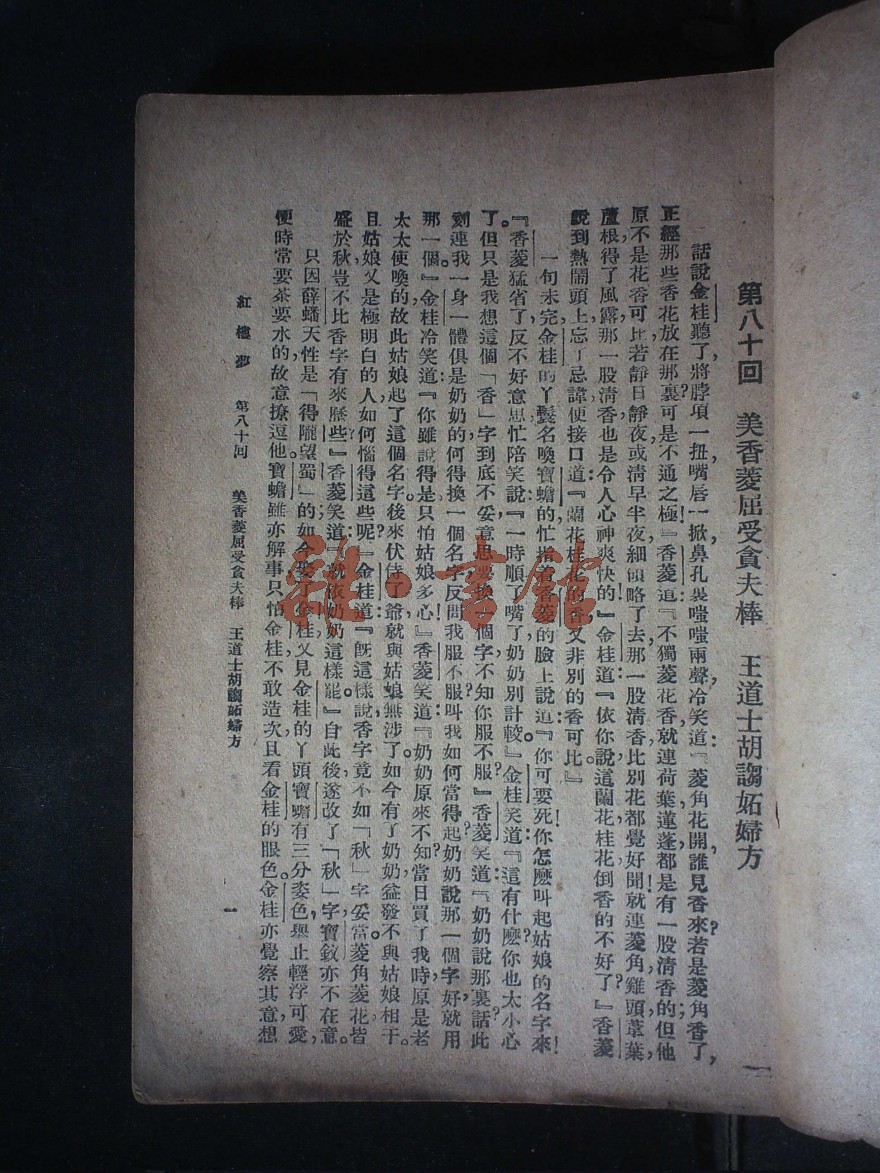 第八十回　美香菱屈受貪夫棒　王道士胡謅妬婦方
話說金桂聽了，將脖項一扭，嘴唇一掀，鼻孔裏嗤嗤兩聲，冷笑道：『菱角花開，誰見香來？若是菱角香了，
正經那些香花放在那裏？可是不通之極！』香菱道：『不獨菱花香，就連荷葉、蓮蓬，都是有一股清香的；但他
原不是花香可比，若靜日靜夜，或清早半夜，細領略了去，那一股清香比別花都覺好聞。就連菱角、雞頭、葦葉、
蘆根，得了風露，那一股清香也是令人心神爽快的。』金桂道：『依你說，這蘭花桂花，倒香的不好了？』香菱
說到熱鬧頭上，忘了忌諱，便接口道：『蘭花桂花的香，又非別的香可比。』
一句未完，金桂的丫鬟名喚寶蟾的，忙指着香菱的臉上說道：『你可要死！你怎麽叫起姑娘的名字來！
』香菱猛省了，反不好意思，忙陪笑說：『一時順了嘴，奶奶別計較。』金桂笑道：『這有什麽，你也太小心
了。但只是我想這個「香」字到底不妥，意思要換一個字，不知你服不服？』香菱笑道：『奶奶說那裏話？此
刻連我一身一體俱是奶奶的，何得換一個名字反問我服不服，叫我如何當得起？奶奶說那一個字好，就用
那一個。』金桂冷笑道：『你雖說得是，只怕姑娘多心！』香菱笑道：『奶奶原來不知：當日買了我時，原是老
太太使喚的，故此姑娘起了這個名字。後來伏侍了爺，就與姑娘無涉了。如今有了奶奶，益發不與姑娘相干。
且姑娘又是極明白的人，如何惱得這些呢？』金桂道：『旣這樣說，香字竟不如「秋」字妥當。菱角菱花皆
盛於秋，豈不比香字有來歷些？』香菱笑道：『就依奶奶這樣罷。』自此後遂改了「秋」字，寶釵亦不在意。
只因薛蟠天性是「得隴望蜀」的，如今娶了金桂，又見金桂的丫頭寶蟾有三分姿色，舉止輕浮可愛，
便時常要茶要水的，故意撩逗他。寶蟾雖亦解事，只怕金桂，不敢造次，且看金桂的眼色。金桂亦覺察其意，想
紅樓夢　第八十回　美香菱屈受貪夫棒　王道士胡謅妬婦方　一